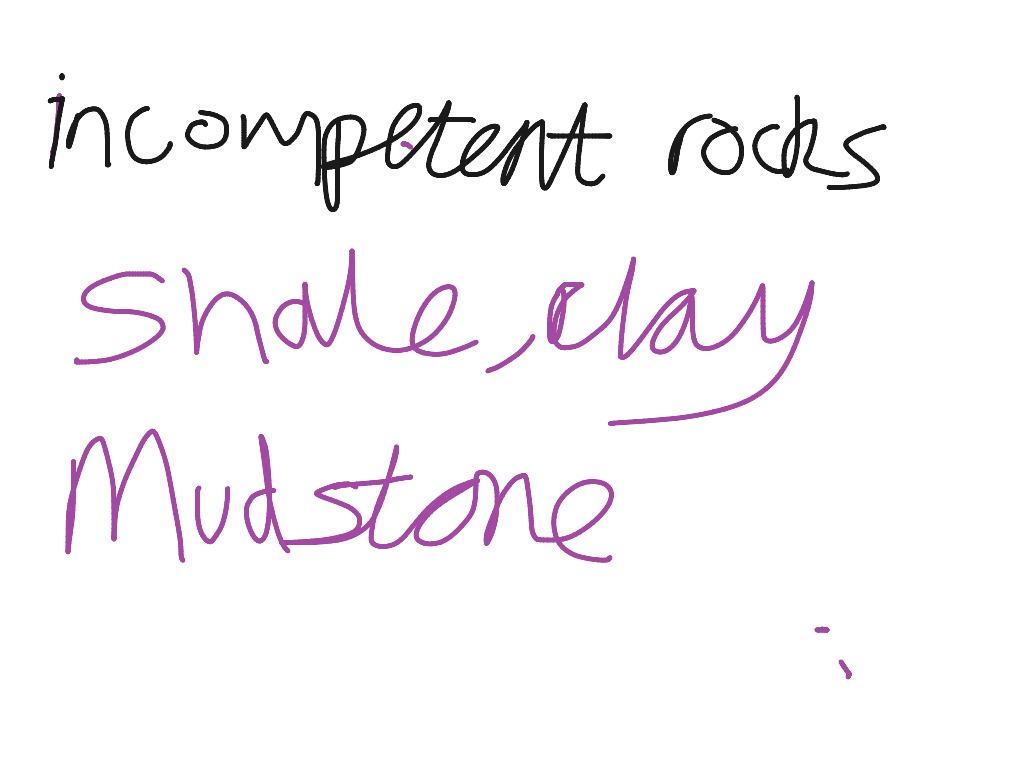 incompetent rocks
Shale, clay
Mudstone